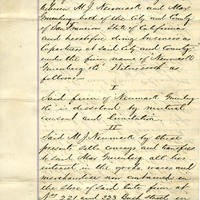 between M. J. Neumark and Max
Gruenberg both of the City and County
of San Francisco State of California
and heretofore doing business as
Copartners at said City and County
under the firm name of Neumark
Gruenberg & Co Witnesseth as
follows
I
Said firm of Neumark Gruenberg
& Co is dissolved by mutual
consent and limitation
II
Said M. J. Neumark by these
present sells conveys and transfers
to said Max Gruenberg all his
interest in the goods wares and
merchandise now contained in
the store of said late firm at
Nos 221 and 223 Bush street in